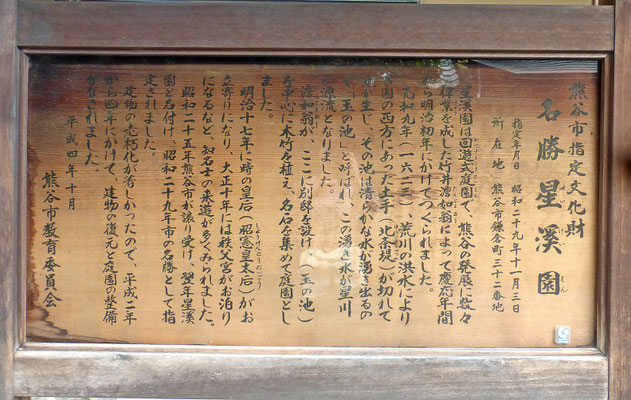 熊谷市指定文化財
名勝 星溪園
せい けい えん
指定年月日 昭和二十九年十一月三日
所在地 熊谷市鎌倉町三十二番地
星溪園は回遊式庭園で、熊谷の発展に数々
の偉業を成した竹井澹如翁によって慶応年間
から明治初年にかけてつくられました。
元和九年(一六二三)、荒川の洪水により
当園の西方にあった土手(北条堤)が切れて
池が生じ、その池は清らかな水が湧き出るの
で、「玉の池」と呼ばれ、この湧き水が星川
の源流となりました。
澹如翁が、ここに別邸を設け、(玉の池)
を中心に木竹を植え、名石を集めて庭園とし
ました。
明治十七年に時の皇后(昭憲皇太后)がお
しょうけんこうたいごう
立寄りになり、大正十年には秩父宮がお泊り
になるなど、知名士の来遊が多くみられました。
昭和二十五年熊谷市が譲り受け、翌年星溪
園と名付け、昭和二十九年市の名勝として指
定されました。
建物の老朽化が著しかったので、平成二年
から四年にかけて、建物の復元と庭園の整備
がなされました。
平成四年十月
熊谷市教育委員会